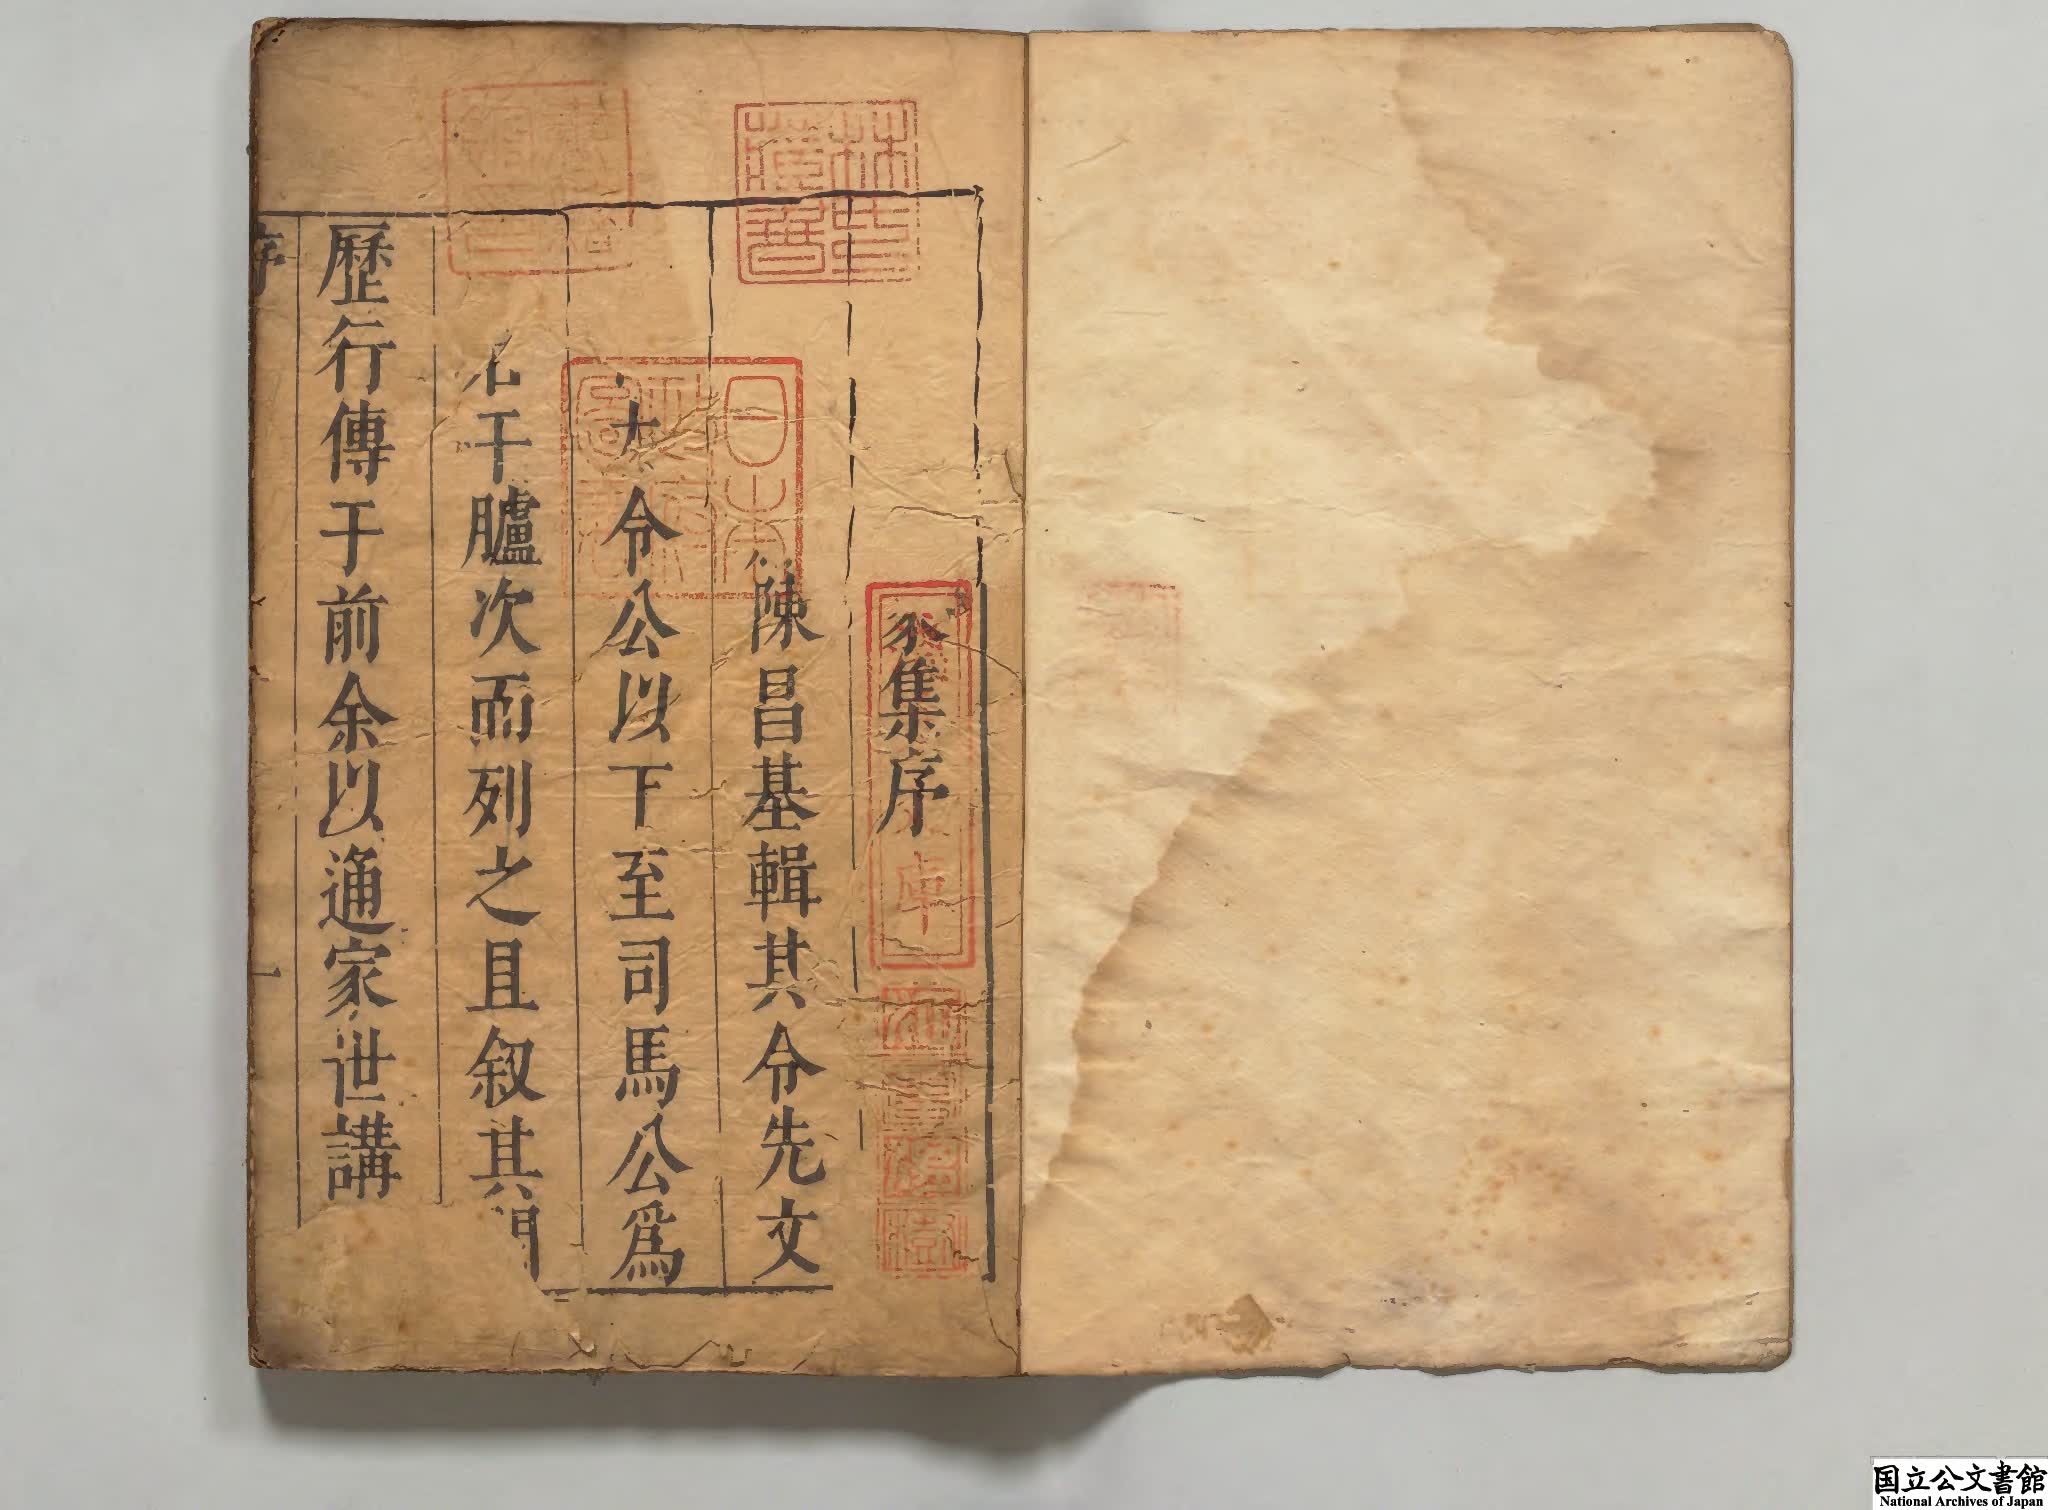 集序
陳昌基輯其令先文
大令公以下至司馬公爲
名干臚次而列之且叙其
歷行傳于前余以通家世講
序
一
林氏藏書
日本政府圖書
国立公文書館
National Archives of Japan